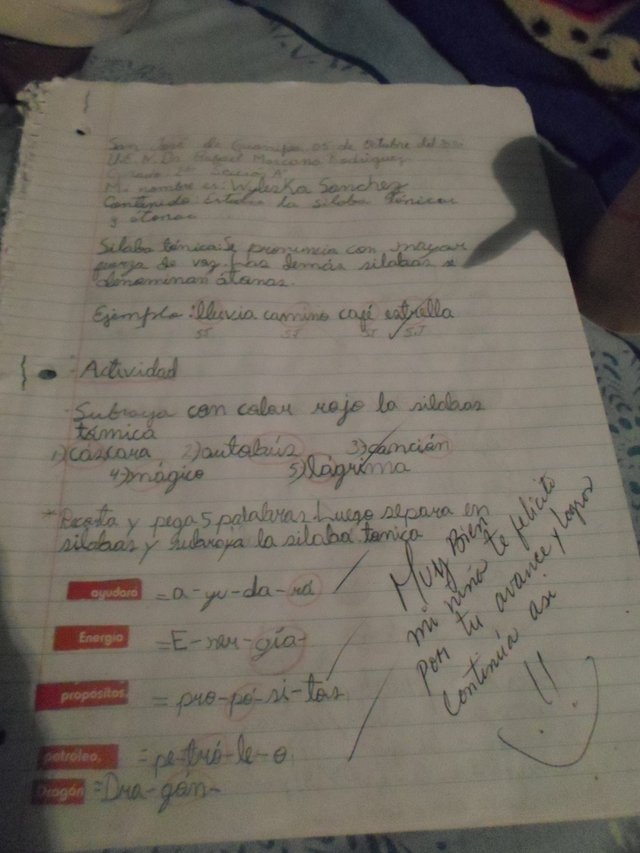 San José de Guanipa 05 de Octubre del
U.E.N. Dr Rafael Marcano Rodríguez
Mi nombre es: Wileska Sanchez
Contenido: la silaba tónicas
y atonas
Silaba tónica: Se pronuncia con mayor
fuerza de voz. Las demás silabas se
denominan átonas.
Ejemplo: lluvia camino café estrella
S.T S.T S.T S.T
Actividad
Subraya con color rojo la silabas
tómica
1) cáscara 2) autobús 3) canción
4) mágico 5) lágrima
* Recorta y pega 5 palabras Luego separa en
silabas y subraya la silaba tonica
ayudará = a-yu-da-rá
Energía = E-ner-gía-
propósitos = pro-pó-si-tos
petróleo, = pe-tró-le-o
Dragón = Dra-gón-
Muy Bien
mi niña te felicito
Por tu avance y logros
Continúa asi
!!